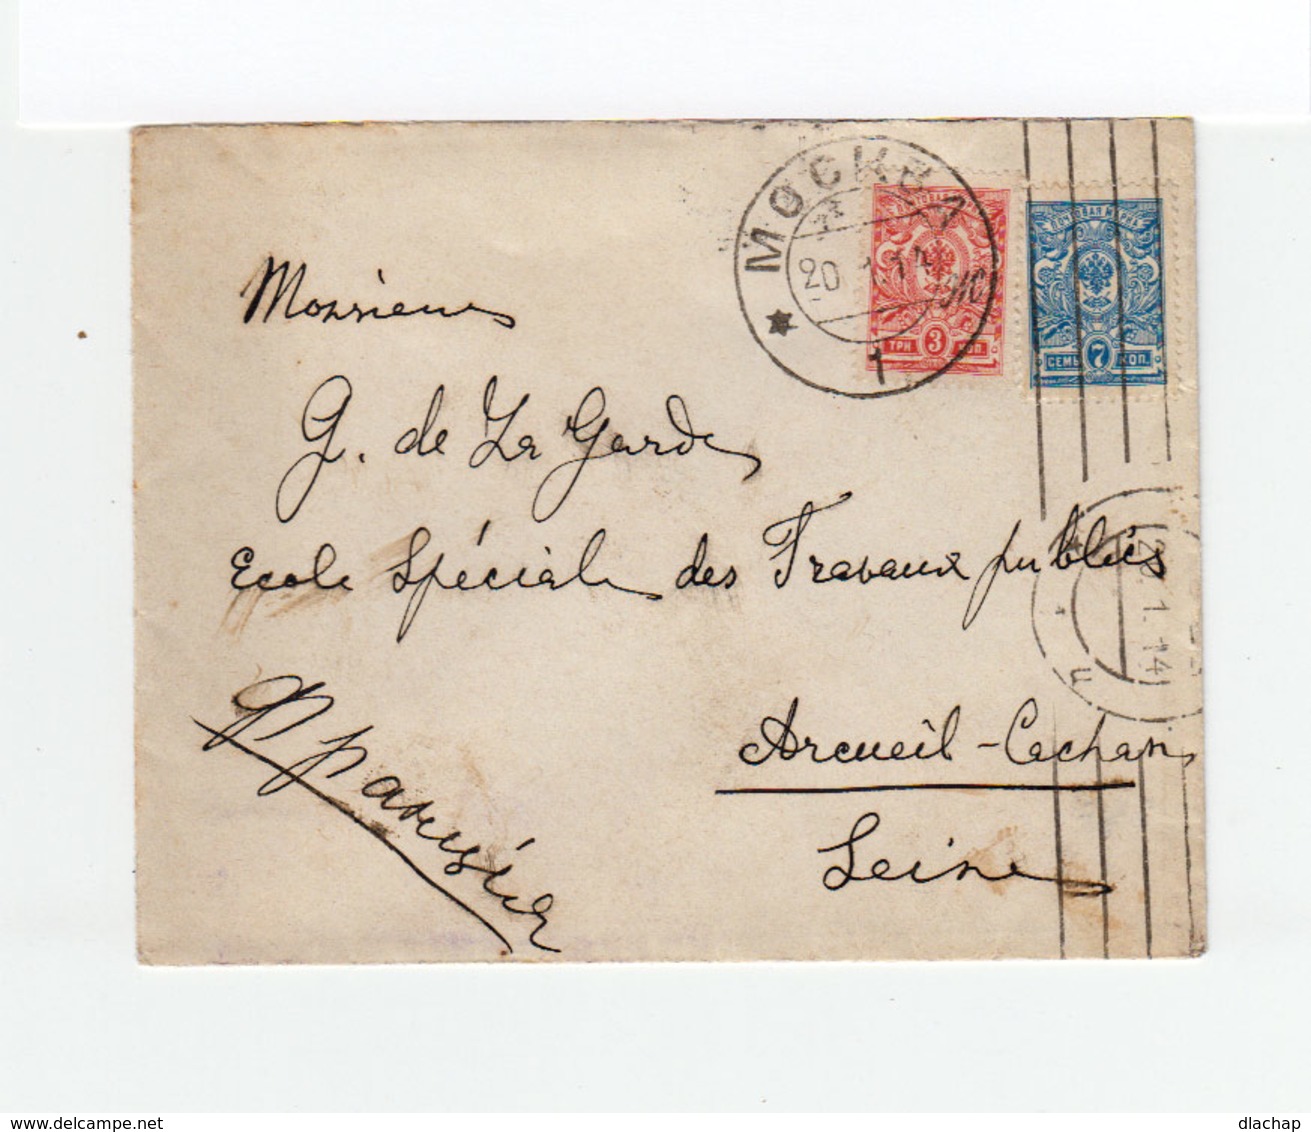 МОСКВА
20.1.14
1
ПОЧТОВАЯ МАРКА
ТРИ 3 КОП.
ПОЧТОВАЯ МАРКА
СЕМЬ 7 КОП.
Monsieur
G. de La Garde
Ecole Spéciale des Travaux publics
1.14
Франція
Arcueil-Cachan
Seine
delcampe.net
dlachap